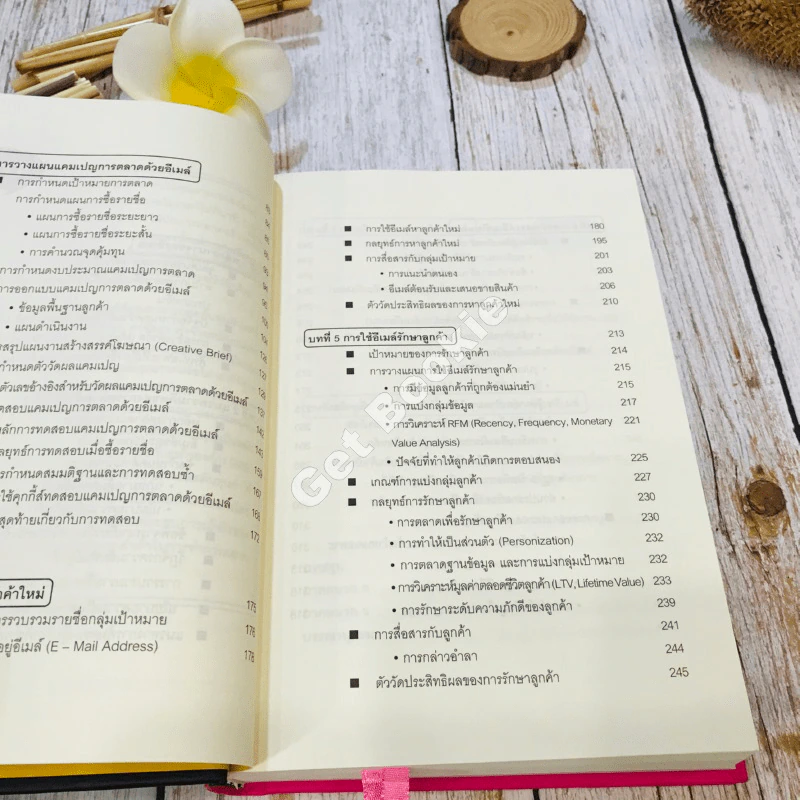 การวางแผนแคมเปญการตลาดด้วยอีเมล์
■ การกำหนดเป้าหมายการตลาด
การกำหนดแผนการซื้อรายชื่อ
• แผนการซื้อรายชื่อระยะยาว
• แผนการซื้อรายชื่อระยะสั้น
• การคำนวณจุดคุ้มทุน
การกำหนดงบประมาณแคมเปญการตลาด
การออกแบบแคมเปญการตลาดด้วยอีเมล์
• ข้อมูลพื้นฐานลูกค้า
• แผนดำเนินงาน
รสรุปแผนงานสร้างสรรค์โฆษณา (Creative Brief) 126
กำหนดตัววัดผลแคมเปญ 127
ตัวเลขอ้างอิงสำหรับวัดผลแคมเปญการตลาดด้วยอีเมล์ 129
ทดสอบแคมเปญการตลาดด้วยอีเมล์ 137
หลักการทดสอบแคมเปญการตลาดด้วยอีเมล์ 140
กลยุทธ์การทดสอบเมื่อซื้อรายชื่อ
ารกำหนดสมมติฐานและการทดสอบซ้ำ 159
ใช้คุกกี้ส์ทดสอบแคมเปญการตลาดด้วยอีเมล์ 167
สุดท้ายเกี่ยวกับการทดสอบ 168
172
ค้าใหม่ 175
ารรวบรวมรายชื่อกลุ่มเป้าหมาย 176
อยู่อีเมล์ (E – Mail Address) 178
■ การใช้อีเมล์หาลูกค้าใหม่ 180
■ กลยุทธ์การหาลูกค้าใหม่ 195
■ การสื่อสารกับกลุ่มเป้าหมาย 201
• การแนะนำตนเอง 203
• อีเมล์ต้อนรับและเสนอขายสินค้า 206
■ ตัววัดประสิทธิผลของการหาลูกค้าใหม่ 210
บทที่ 5 การใช้อีเมล์รักษาลูกค้า 213
■ เป้าหมายของการรักษาลูกค้า 214
■ การวางแผนการใช้อีเมล์รักษาลูกค้า 215
• การมีข้อมูลลูกค้าที่ถูกต้องแม่นยำ 215
• การแบ่งกลุ่มข้อมูล 217
• การวิเคราะห์ RFM (Recency, Frequency, Monetary 221
Value Analysis)
• ปัจจัยที่ทำให้ลูกค้าเกิดการตอบสนอง 225
■ เกณฑ์การแบ่งกลุ่มลูกค้า 227
■ กลยุทธ์การรักษาลูกค้า 230
• การตลาดเพื่อรักษาลูกค้า 230
• การทำให้เป็นส่วนตัว (Personization) 232
• การตลาดฐานข้อมูล และการแบ่งกลุ่มเป้าหมาย 232
• การวิเคราะห์มูลค่าตลอดชีวิตลูกค้า (LTV, Lifetime Value) 233
• การรักษาระดับความภักดีของลูกค้า 239
■ การสื่อสารกับลูกค้า 241
• การกล่าวอำลา 244
■ ตัววัดประสิทธิผลของการรักษาลูกค้า 245
Get Bookie